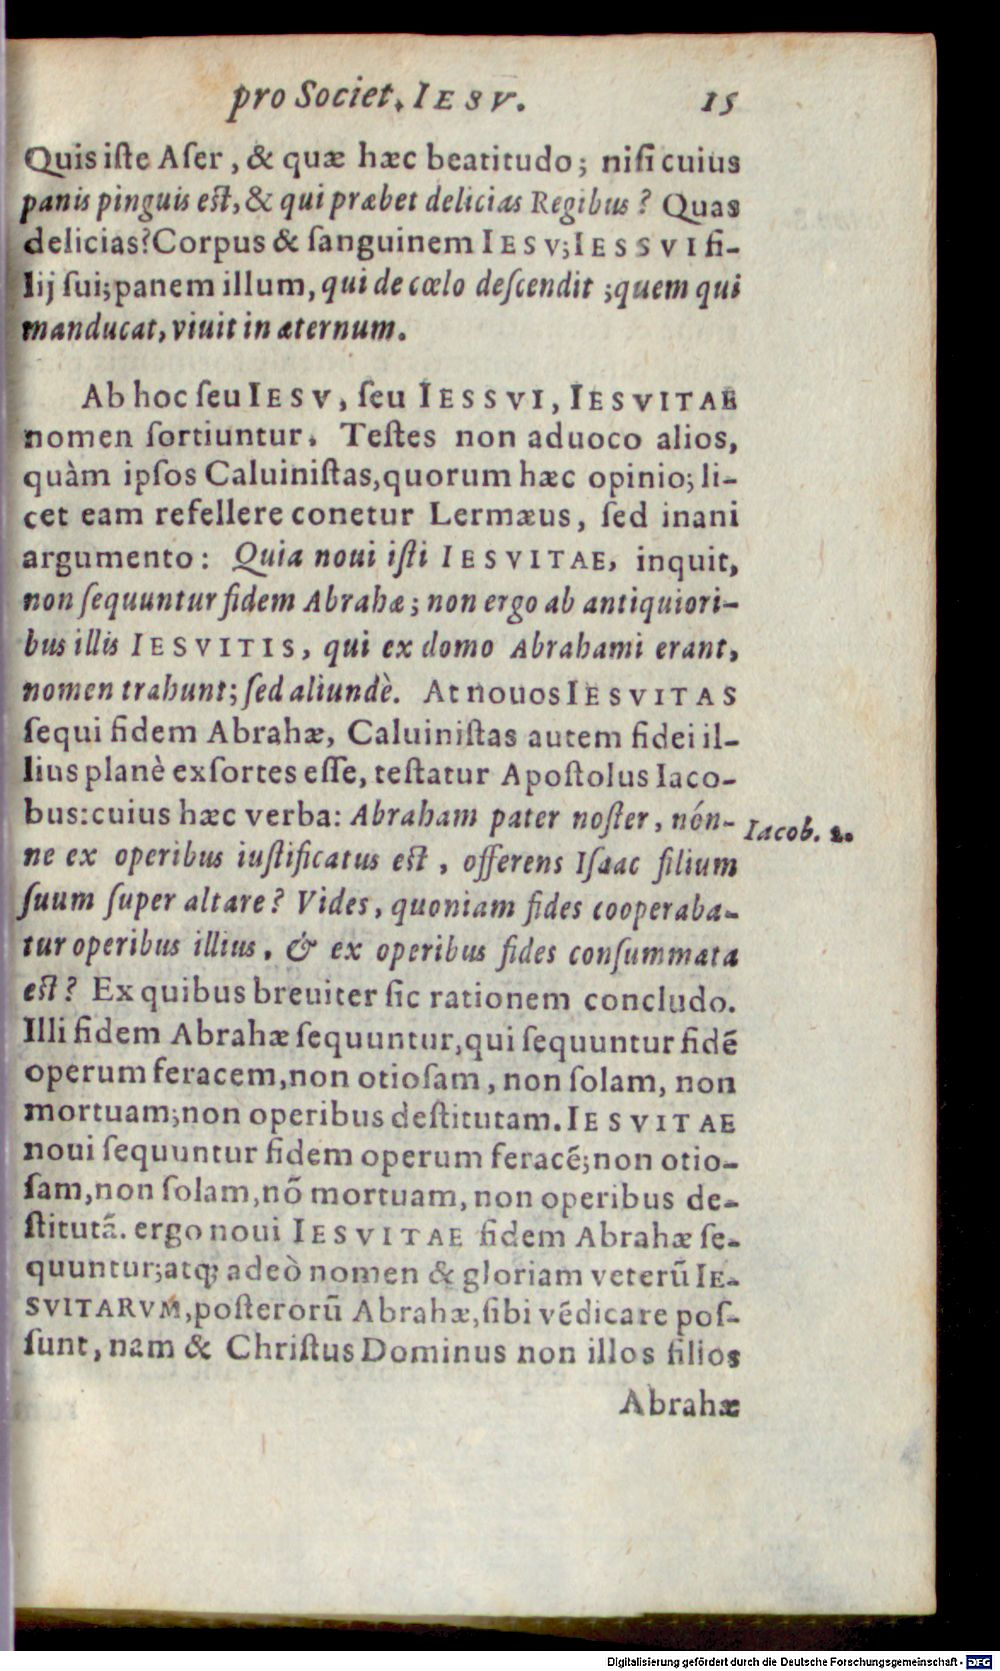 pro Societ. IESV. 15
Quis iſte Aſer, & quæ hæc beatitudo; niſi cuius
panis pinguis eſt, & qui præbet delicias Regibus? Quas
delicias? Corpus & ſanguinem IESV; IESSVI fi-
lij ſui; panem illum, qui de cœlo deſcendit; quem qui
manducat, viuit in æternum.
Ab hoc ſeu IESV, ſeu IESSVI, IESVITAE
nomen ſortiuntur. Teſtes non aduoco alios,
quàm ipſos Caluiniſtas, quorum hæc opinio; li-
cet eam refellere conetur Lermæus, ſed inani
argumento: Quia noui iſti IESVITAE, inquit,
non ſequuntur fidem Abrahæ; non ergo ab antiquiori-
bus illis IESVITIS, qui ex domo Abrahami erant,
nomen trahunt; ſed aliundè. At nouos IESVITAS
ſequi fidem Abrahæ, Caluiniſtas autem fidei il-
lius planè exſortes eſſe, teſtatur Apoſtolus Iaco-
bus: cuius hæc verba: Abraham pater noſter, nón-
Iacob. 2.
ne ex operibus iuſtificatus eſt, offerens Iſaac filium
ſuum ſuper altare? Vides, quoniam fides cooperaba-
tur operibus illius, & ex operibus fides conſummata
eſt? Ex quibus breuiter ſic rationem concludo.
Illi fidem Abrahæ ſequuntur, qui ſequuntur fidē
operum feracem, non otioſam, non ſolam, non
mortuam; non operibus deſtitutam. IESVITAE
noui ſequuntur fidem operum feracē; non otio-
ſam, non ſolam, nō mortuam, non operibus de-
ſtitutā. ergo noui IESVITAE fidem Abrahæ ſe-
quuntur; atq; adeò nomen & gloriam veterū IE-
SVITARVM, poſterorū Abrahæ, ſibi vēdicare poſ-
ſunt, nam & Chriſtus Dominus non illos filios
Abrahæ
Digitalisierung gefördert durch die Deutsche Forschungsgemeinschaft - DFG